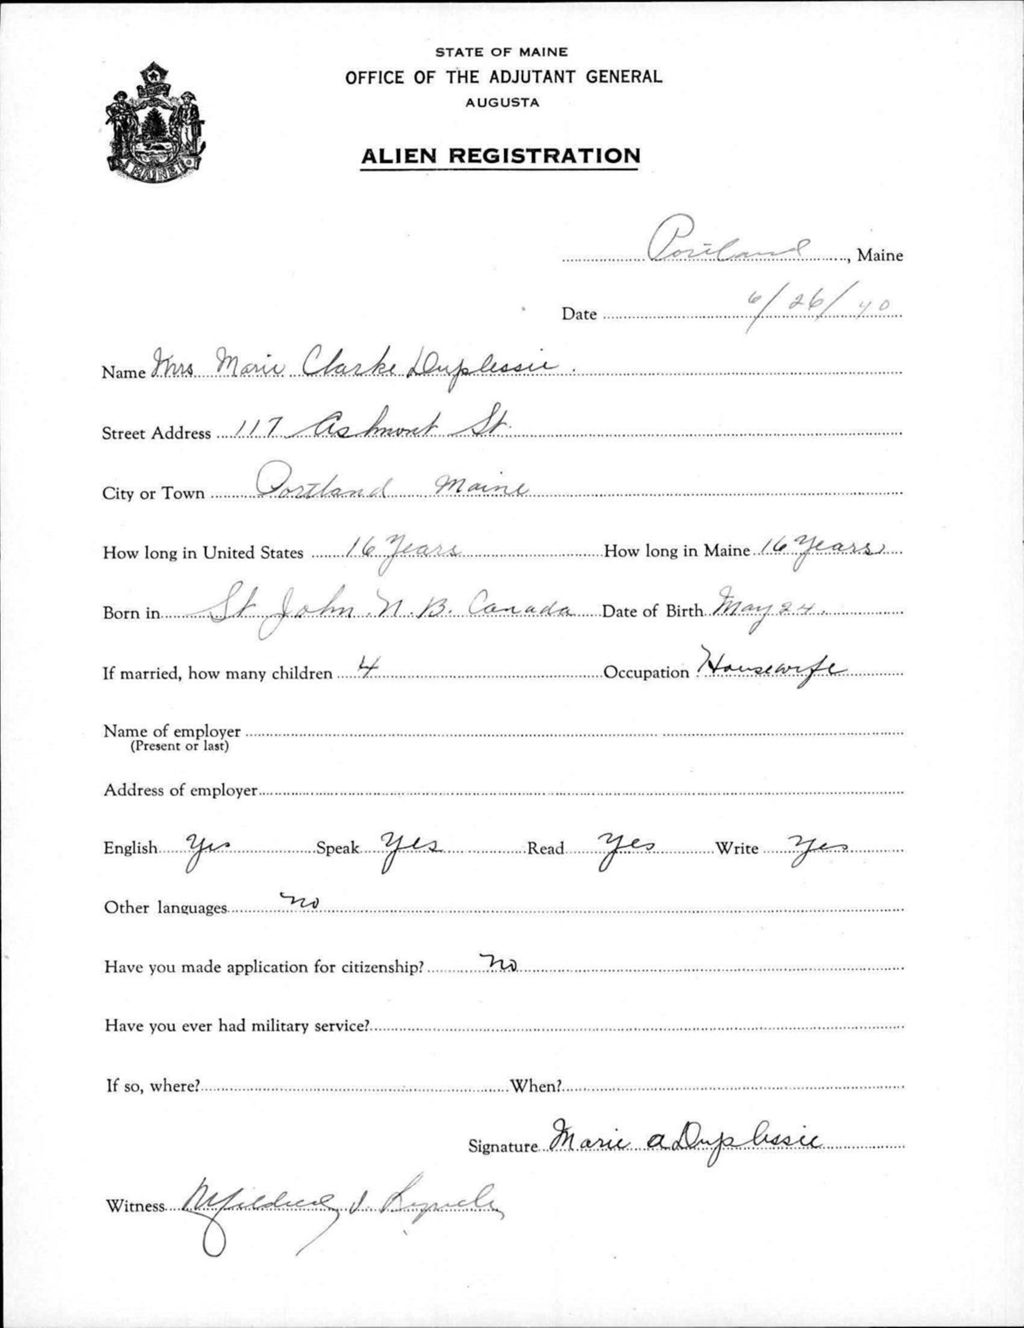 STATE OF MAINE
OFFICE OF THE ADJUTANT GENERAL
AUGUSTA
ALIEN REGISTRATION
MAINE
Portland, Maine
Date 6/26/40
Name Mrs Marie Clarke Duplessie.
Street Address 117 Ashmont St.
City or Town Portland Maine
How long in United States 16 Years How long in Maine 16 Years
Born in St John N.B. Canada Date of Birth May 24.
If married, how many children 4 Occupation Housewife
Name of employer
(Present or last)
Address of employer
English Yes Speak Yes Read Yes Write Yes
Other languages No
Have you made application for citizenship? No
Have you ever had military service?
If so, where? When?
Signature Marie A Duplessie
Witness Mildred I.